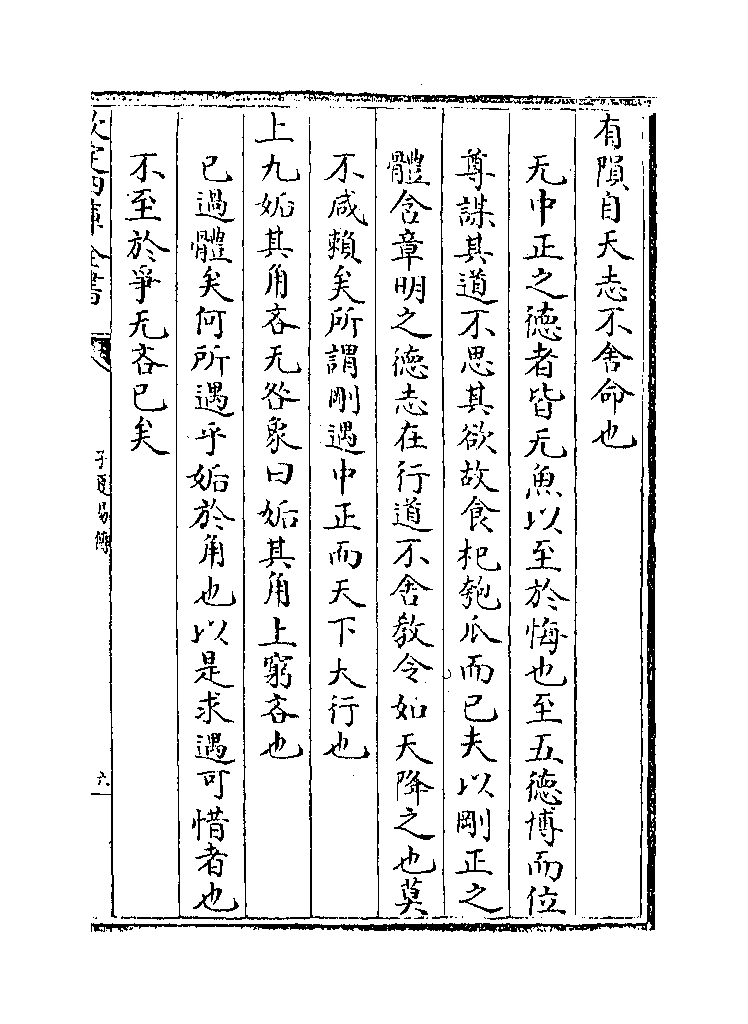 有隕自天志不舍命也
无中正之德者皆无魚以至於悔也至五德博而位
尊謀其道不思其欲故食杞匏瓜而已夫以剛正之
體含章明之德志在行道不舍教令如天降之也莫
不咸賴矣所謂剛遇中正而天下大行也
上九姤其角吝无咎象曰姤其角上窮吝也
已過體矣何所遇乎姤於角也以是求遇可惜者也
不至於爭无咎已矣
欽定四庫全書
子夏易傳
六